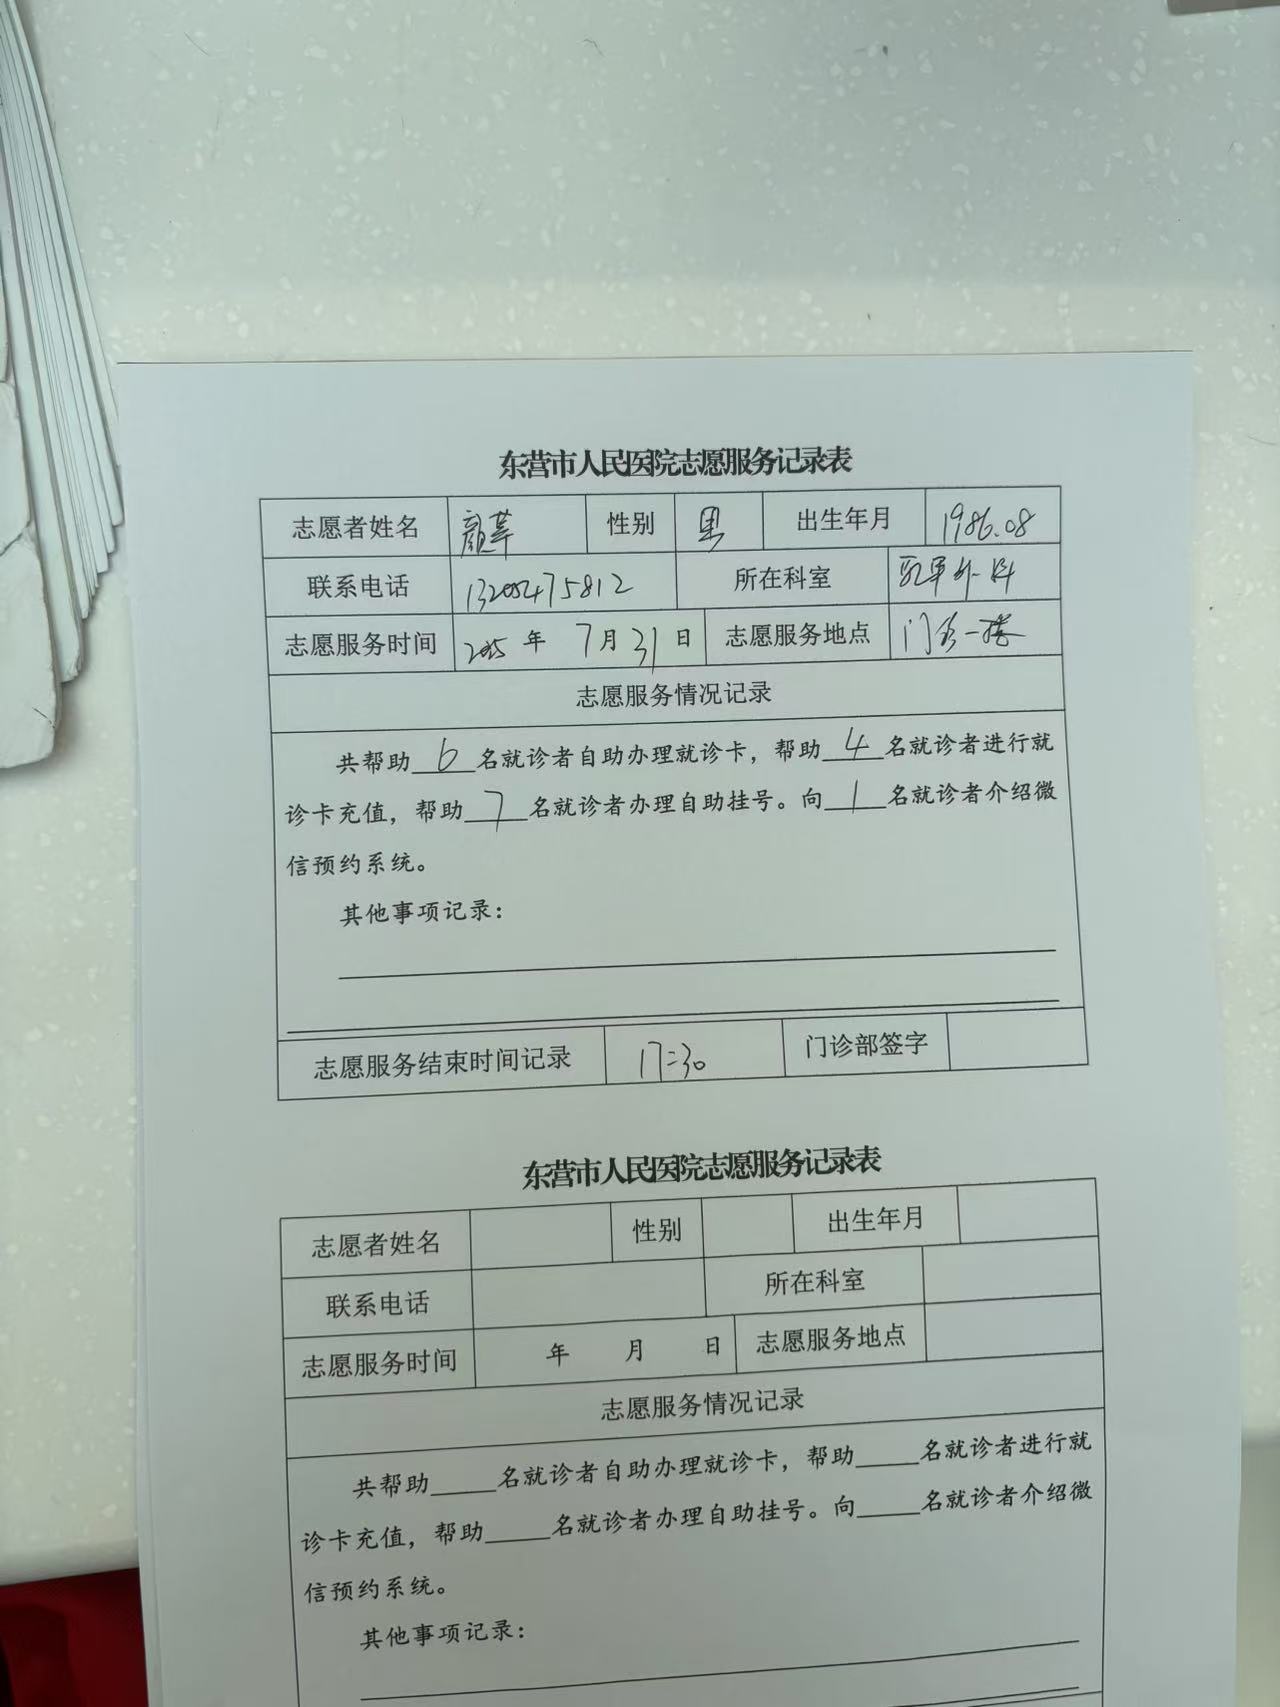 东营市人民医院志愿服务记录表
志愿者姓名 颜华 性别 男 出生年月 1986.08
联系电话 13205475812 所在科室 外科
志愿服务时间 2025 年 7 月 31 日 志愿服务地点 门诊一楼
志愿服务情况记录
共帮助 6 名就诊者自助办理就诊卡，帮助 4 名就诊者进行就
诊卡充值，帮助 7 名就诊者办理自助挂号。向 1 名就诊者介绍微
信预约系统。
其他事项记录：
志愿服务结束时间记录 17:30 门诊部签字
东营市人民医院志愿服务记录表
志愿者姓名 性别 出生年月
联系电话 所在科室
志愿服务时间 年 月 日 志愿服务地点
志愿服务情况记录
共帮助_____名就诊者自助办理就诊卡，帮助_____名就诊者进行就
诊卡充值，帮助_____名就诊者办理自助挂号。向_____名就诊者介绍微
信预约系统。
其他事项记录：